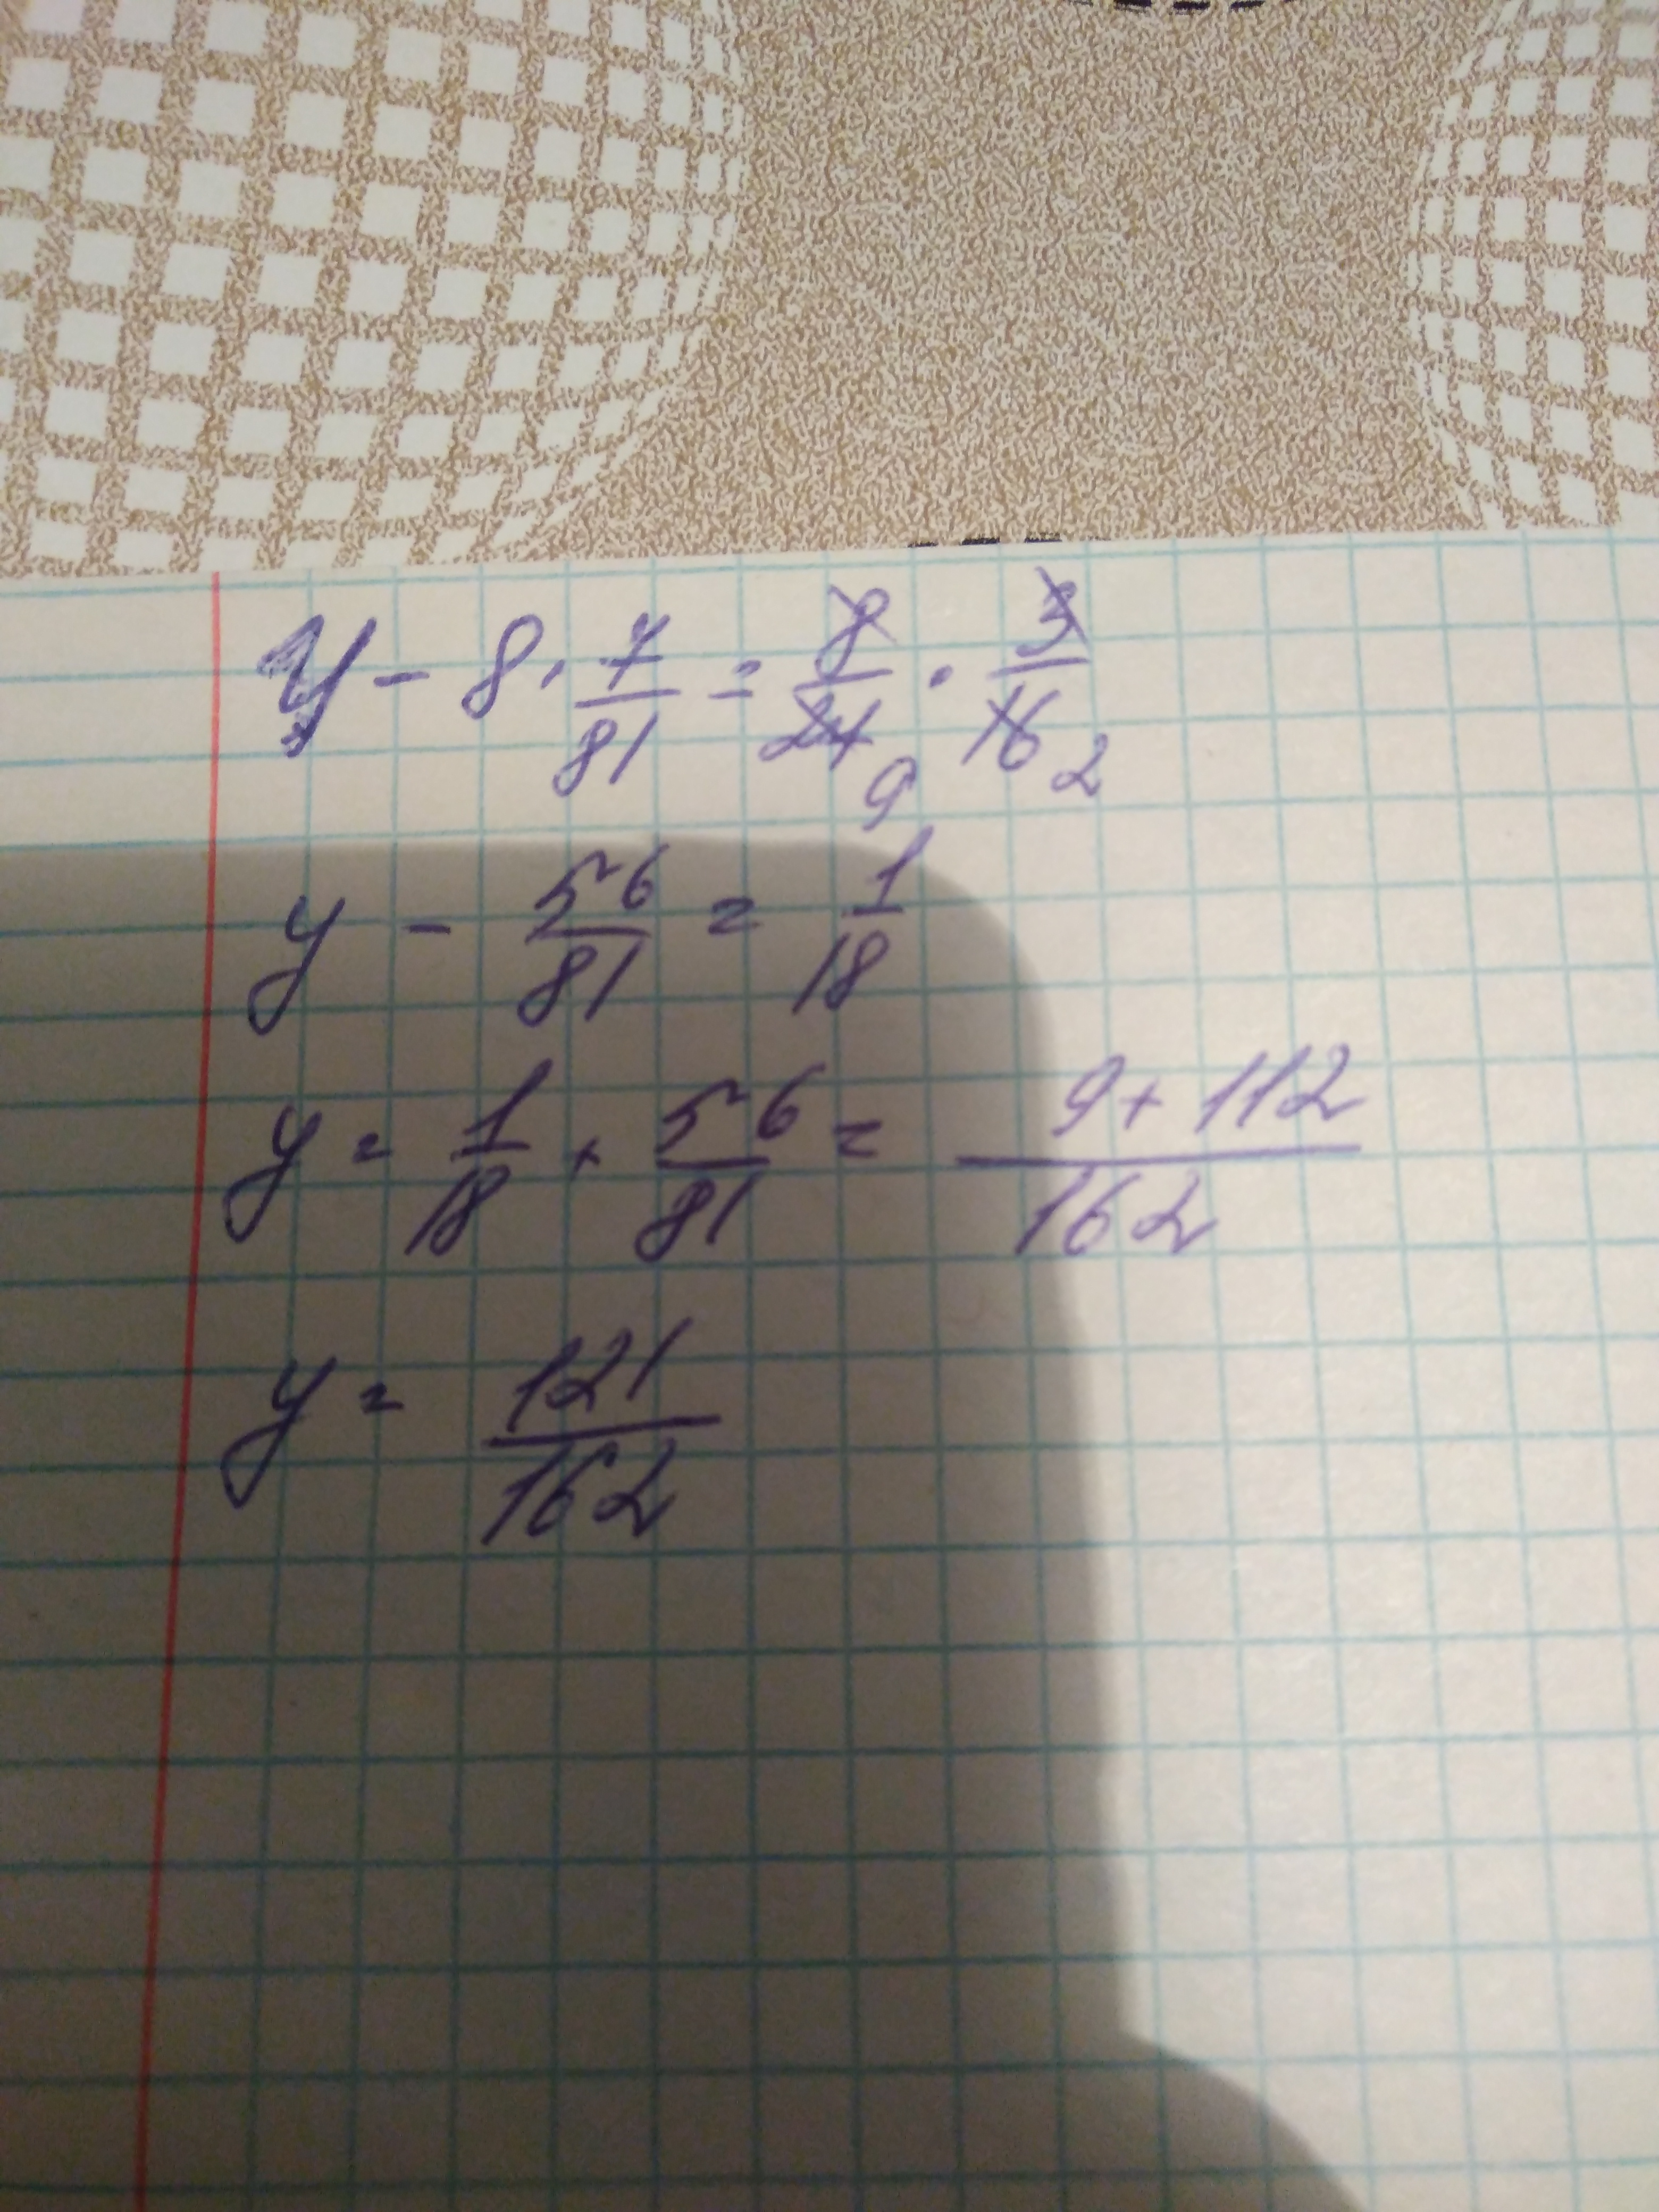 y - 8 · 7/81 = 8/27 · 3/16
9 2
y - 56/81 = 1/18
y = 1/18 + 56/81 = (9 + 112)/162
y = 121/162